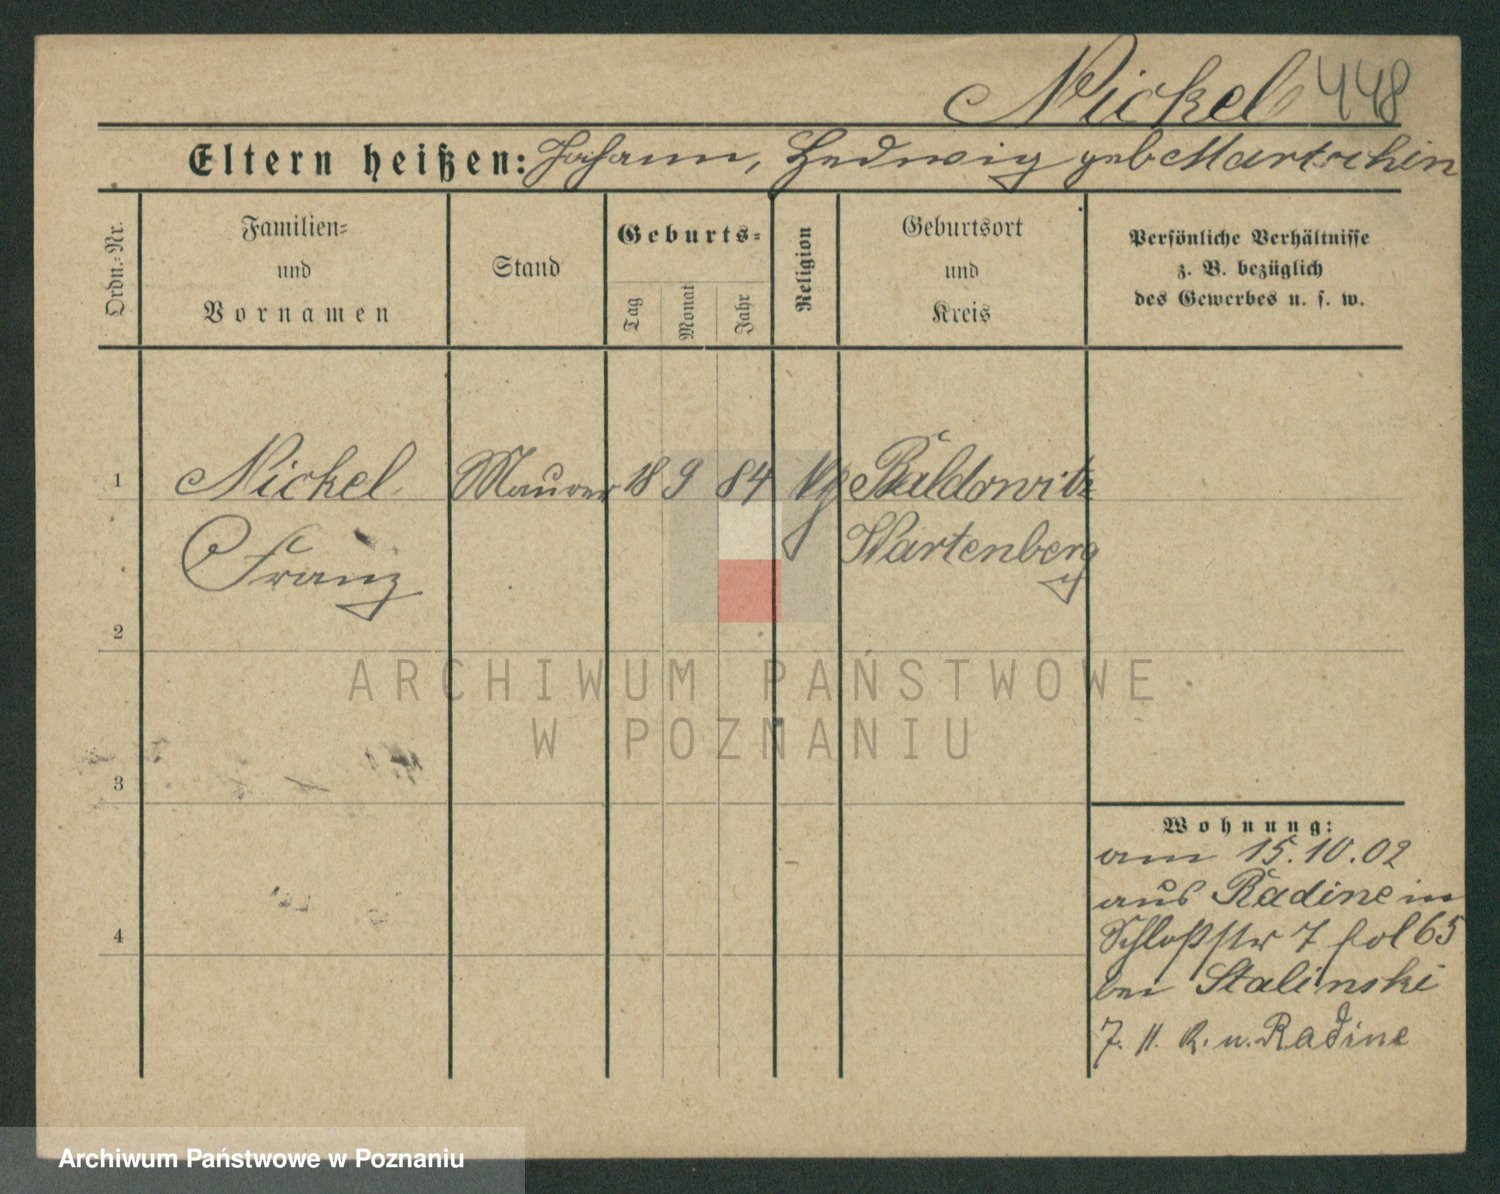 Nickel 448
Eltern heißen: Johann, Hedwig geb Martschin
Ordn.-Nr.
Familien-
und
Vornamen
Stand
Geburts-
Tag
Monat
Jahr
Religion
Geburtsort
und
Kreis
Persönliche Verhältnisse
z. B. bezüglich
des Gewerbes u. s. w.
1 Nickel Maurer 18 9 84 Baldowitz
Franz Wartenberg
2
3
4
ARCHIWUM PAŃSTWOWE
W POZNANIU
Wohnung:
am 15.10.02
aus Radine in
Schloßstr 7 fol 65
bei Stalinski
7. 11. R. n. Radine
Archiwum Państwowe w Poznaniu